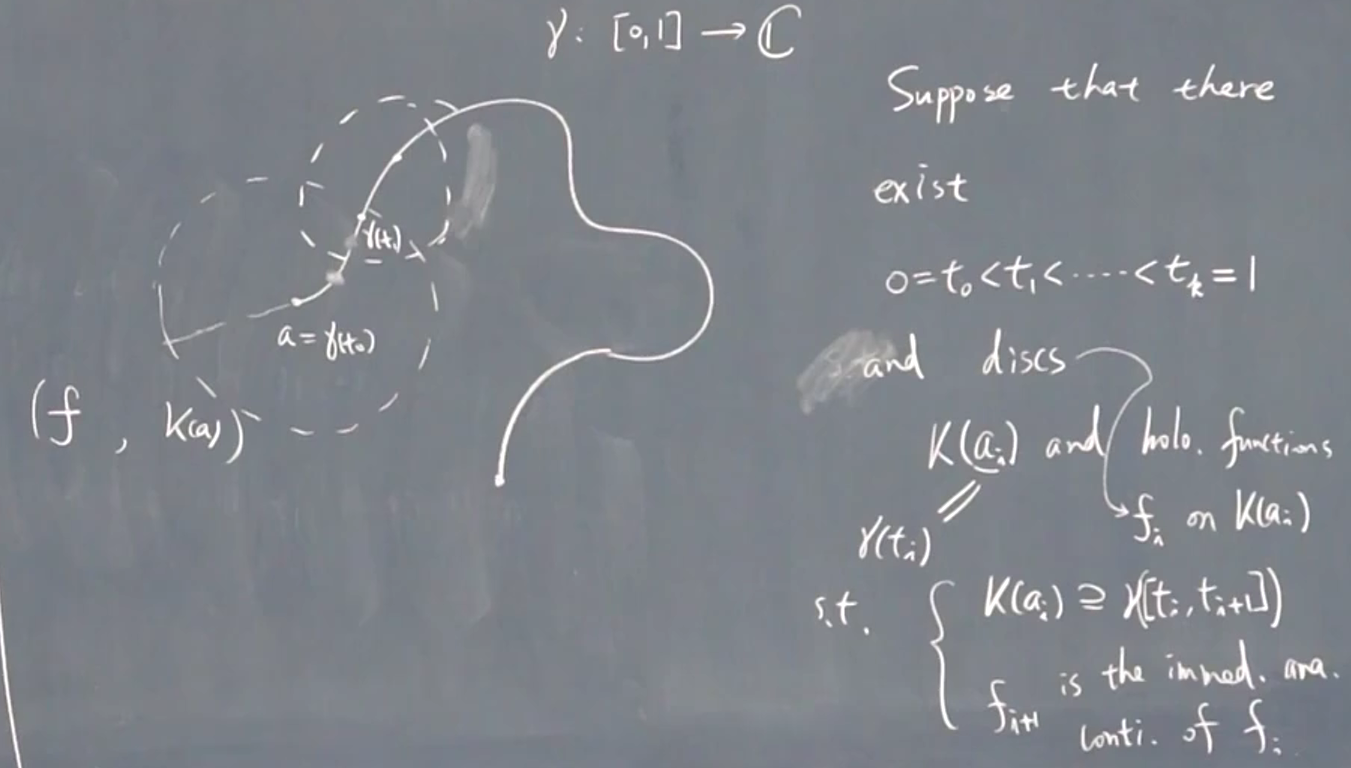 γ: [0,1] → ℂ
γ(t₁)
a = γ(t₀)
(f , K(a))
Suppose that there
exist
0=t₀<t₁<·····<tₖ=1
and discs
K(aᵢ) and holo. functions
γ(tᵢ)
fᵢ on K(aᵢ)
s.t. { K(aᵢ) ⊇ γ([tᵢ, tᵢ₊₁])
fᵢ₊₁ is the immed. ana.
conti. of fᵢ